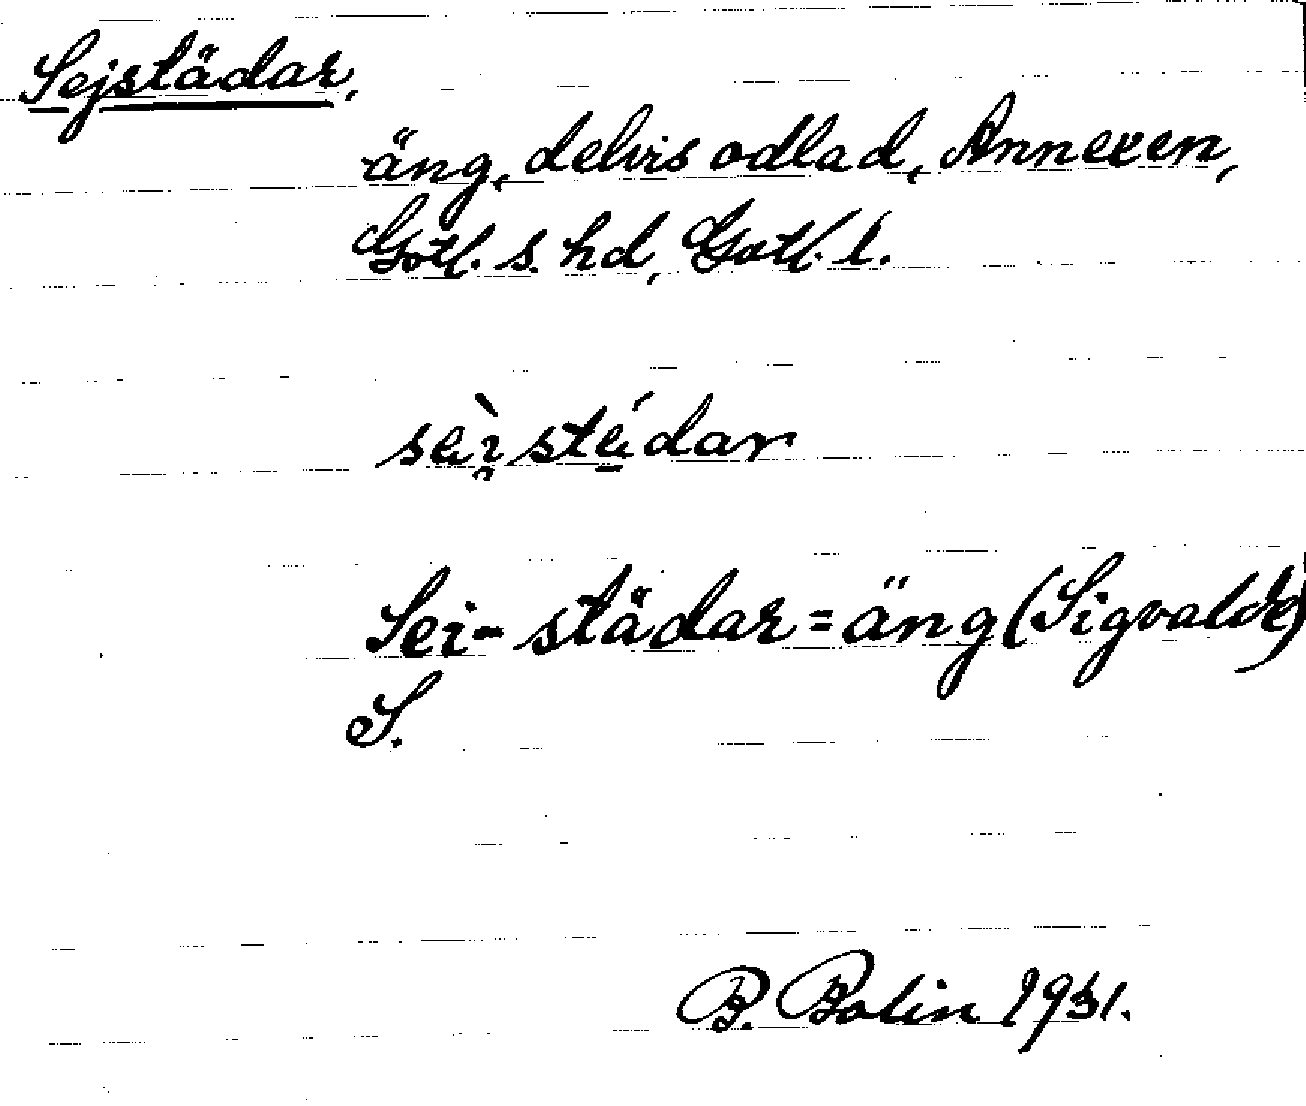 Sejstädar,
äng, delvis odlad, Annexen,
Gotl. s. hd, Gotl. l.
sèi̯stédar
Sei-städar = äng (Sigvalde)
S.
B. Bolin 1931.